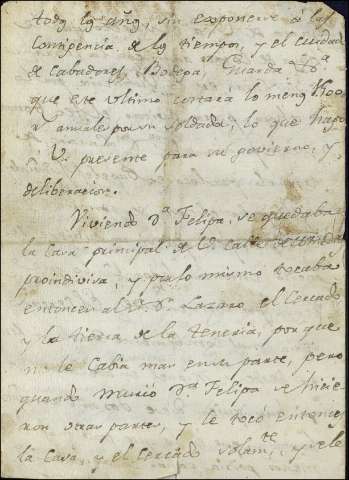 todos los años, sin exponerse á las
contigencia de los tiempos, y el cuidado
de Cabadores, Bodega, Guarda &ª
que este ultimo costará lo menos 1500
r anuales por su soldada, lo que hago
V. presente para su govierno, y
deliberacion.
Viviendo Dª Felipa, se quedaba
la Casa principal de la Calle de
proindivisa, y por lo mismo tocaba
entonces al Sr. Dn. Lazaro el Cercado
y la tierra de la Teneria, por que
no le Cabia mas en su parte, pero
quando murió Dª Felipa se hicie
ron otras partes, y le tocó entonces
la Casa, y el Cercado solamte, y se le